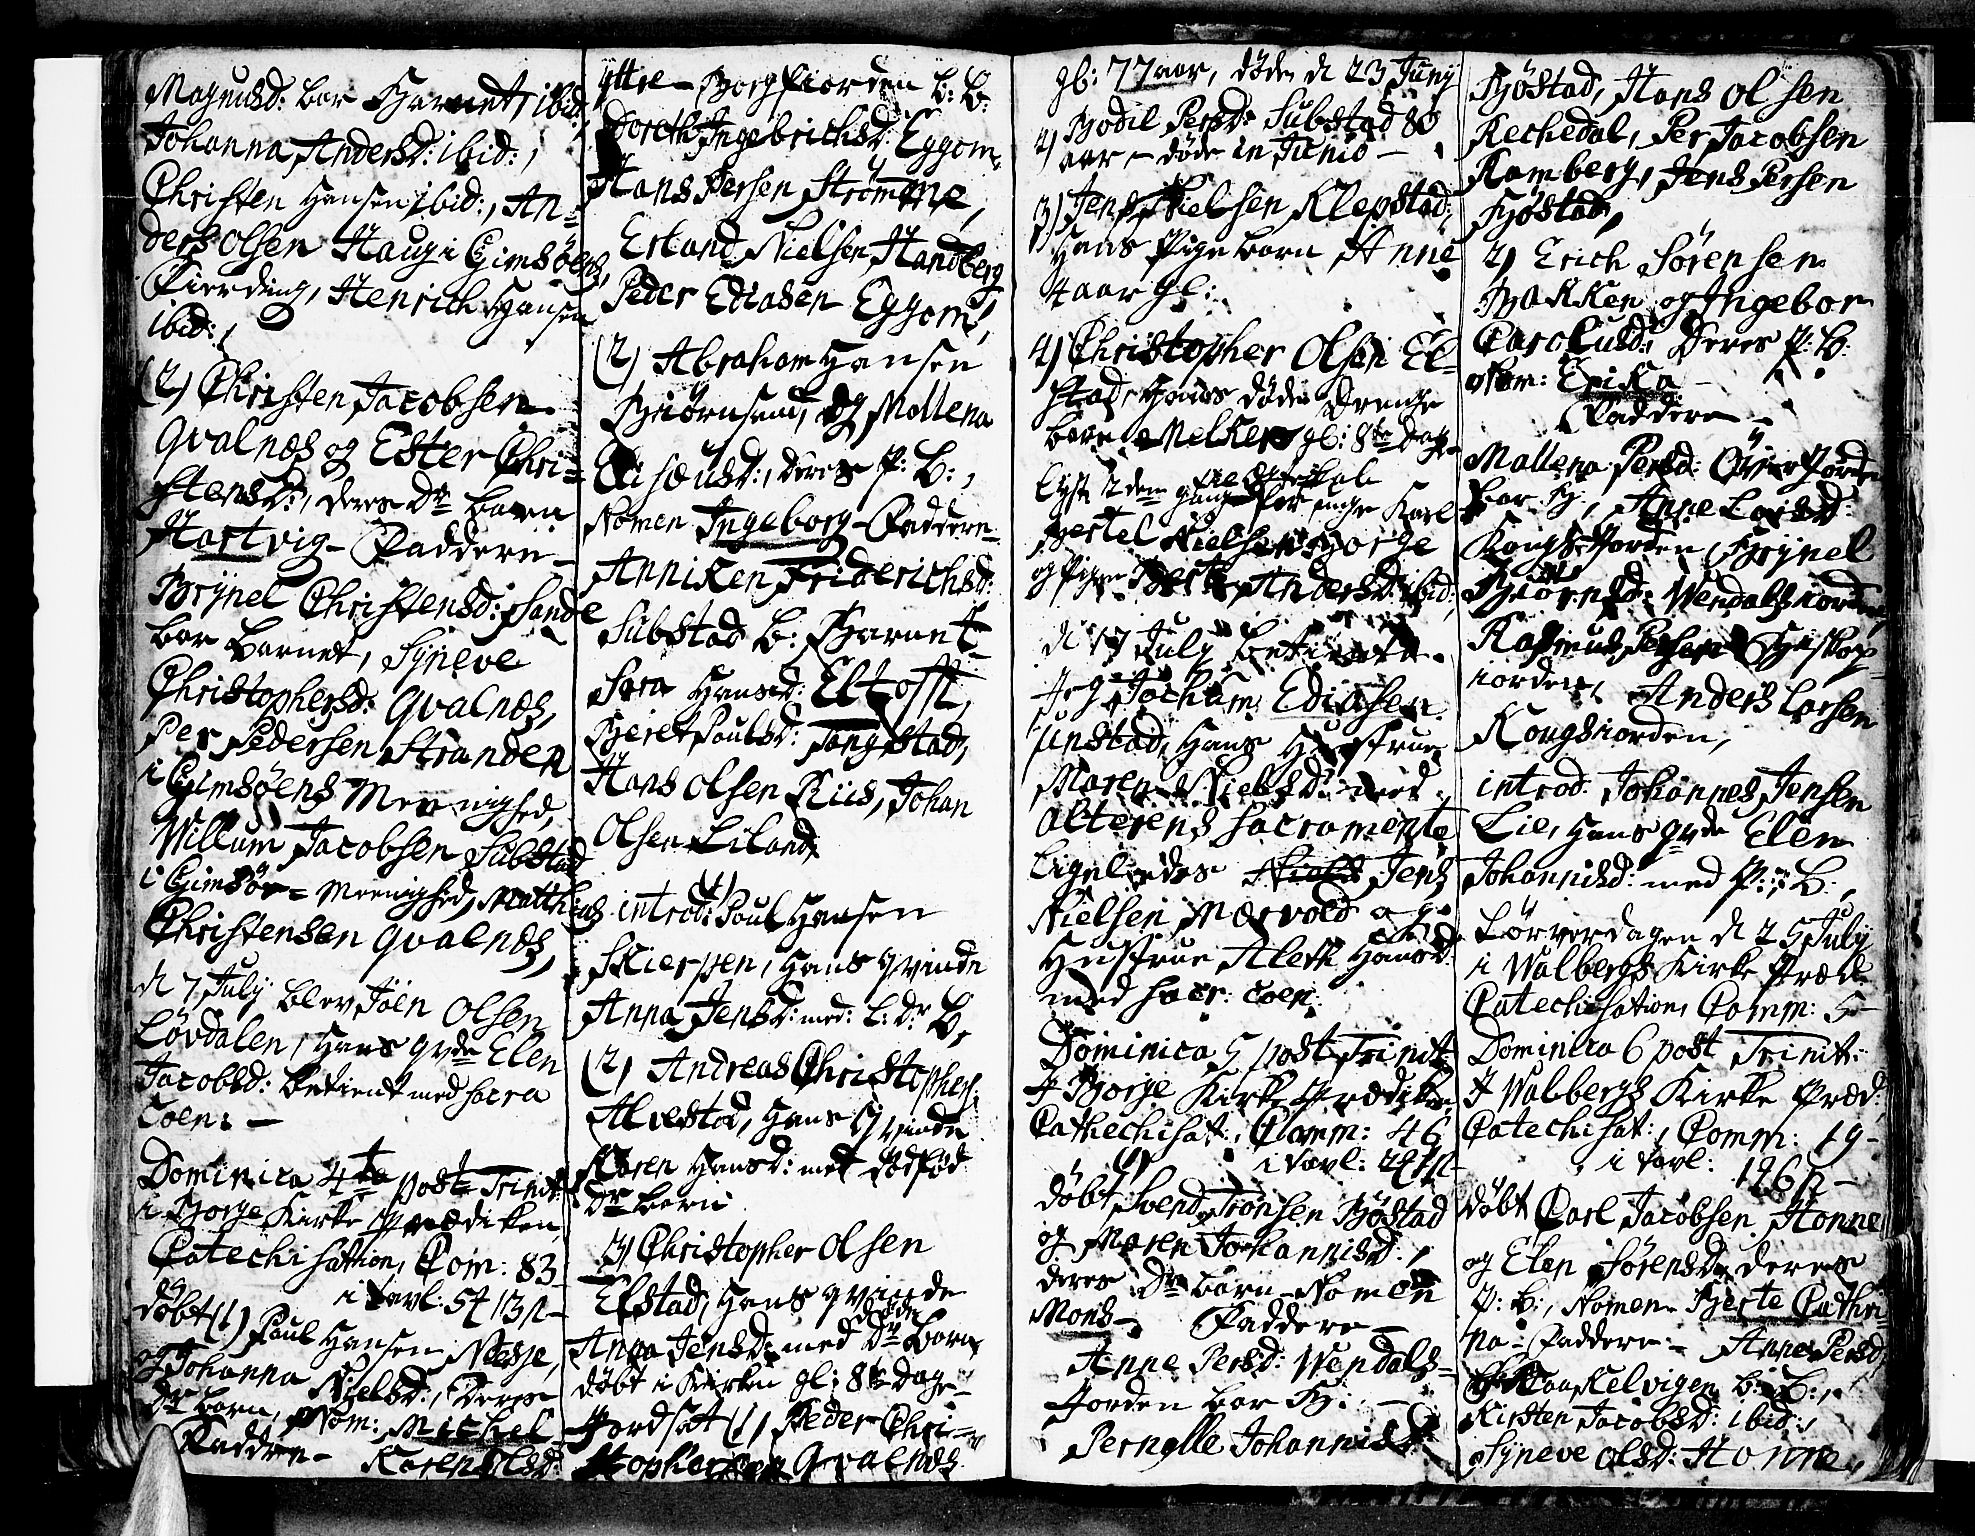 Magnusd: bar Barnet, ibid:
Johanna Andersd: ibid:,
Christen Hansen ibid:, An-
ders Olsen Haug i Gimsöens
Fierding, Henrich Hansen
ibid:,
(2) Christen Jacobsen
Qvalnæs og Ester Chri-
stensd:, deres Dr: barn
Hartvig - Faddere -
Brÿnel Christensd: Sande
bar barnet, Sÿneve
Christophersd: Qvalnæs,
Per Pedersen Stranden
i Gimsöens Meenighed,
Willum Jacobsen Substad
i Gimsöe = Meenighed, Matthias
Christensen Qvalnæs,
d 7 Julÿ blev Joen Olsen
Lövdalen, Hans qvde Elen
Jacobsd: betient med sacra
Coen: -
Dominica 4te post Trinit:
i Borge Kirke Prædiken,
Catechisation, Com: 83
i tavl: 5
döbt (1) Poul Hansen Næsje,
og Johanna Nielsd:, deres
Dr barn, Nom: Michel
Faddere - Karen Olsd:
Ÿttre - Borgfiorden b: B:
Doreth Ingebrichsd: Eggom
Hans Persen Strömme,
Erland Nielsen Handberg
Peder Ediasen Eggom,
(2) Abraham Hansen
Biörnsand, og Mollena
Elisæusd:, deres P: B:,
Nomen Ingeborg - Faddere -
Anniken Friderichsd:
Substad b: Barnet -
Sara Hansd: Eltofft,
Beret Poulsd: Tangstad,
Hans Olsen Riis, Johan
Olsen Liland,
introd: (1) Poul Hansen
Skierpen, Hans Qvinde
Anna Jensd: med: l: Dr B,
(2) Andreas Christophers:
Alvestad, Hans Qvinde
Karen Hansd: met dödföd
Dr barn
3) Christopher Olsen
Elstad, Hans qvinde
Anna Jensd: med döde Dr barn
döbt i Kirken gl: 8te Dage -
Jordsat (1) Peder Chri-
stophersen Qvalnæs
gl: 77 aar, döde d 23 Junÿ
2) Bodil Persd: Substad 80
aar - döde in Junio -
3) Jens Nielsen Klepstad:
Hans Pige barn Anne
4 aar gl:
4) Christopher Olsen El-
stad, Hans döde Drenge
barn Melker gl: 8te Dage
Lÿst 2den gang for unge Karl
Bertel Nielsen Borge
og Pigen Andersd: ibid:
d 17 Julÿ betient
Jochum Ediasen
Unstad, Hans Hustrue
Maren Nielsd: med
alterens sacramente
Ligeledes Jens
Nielsen Mærvold og
Hustrue Aleth Hansd:
med sacr: coen:
Dominica 5 post Trinit:
I Borge Kirke Prædiken,
Cathechisat:, Comm: 46
i tavl:
döbt (1) Svend Tronsen Böstad
og Maren Johannisd:,
deres Dr barn - Nomen
Mons - Faddere -
Anne Persd: Wendals-
Jorden bar B: -
Pernelle Johannisd:
Böstad, Hans Olsen
Rechedal, Per Jacobsen
Ramberg, Jens Persen
Böstad,
2) Erich Sörensen
Bakken og Ingebor
Carolusd: Deres P: B:
Nom: Erika -
Faddere -
Mallena Persd:
bar B:, Anne Larsd:
Kongsiorden, Brÿnel
Biörnsd: Wendalsiorden,
Rasmus Persen Biskop-
iorden, Anders Larsen
Kongsiorden,
introd: Johannes Jensen
Lie, Hans qvde Elen
Johannisd: med P: B:,
Löverdagen d 25 Julÿ
i Walbergs Kirke Præd:
Catechisation, Comm: 5 -
Dominica 6 post Trinit:
I Walbergs Kirke Præd:
Catechisat:, Comm: 19 -
i tavl:
döbt Carl Jacobsen Honne
og Elen Sörensd: deres
P: B:, Nomen Berte Cathri-
na - Faddere - Anne Persd:
Haakelvigen b: B:,
Kirsten Jacobsd: ibid:,
Sÿneve Olsd: Honne,